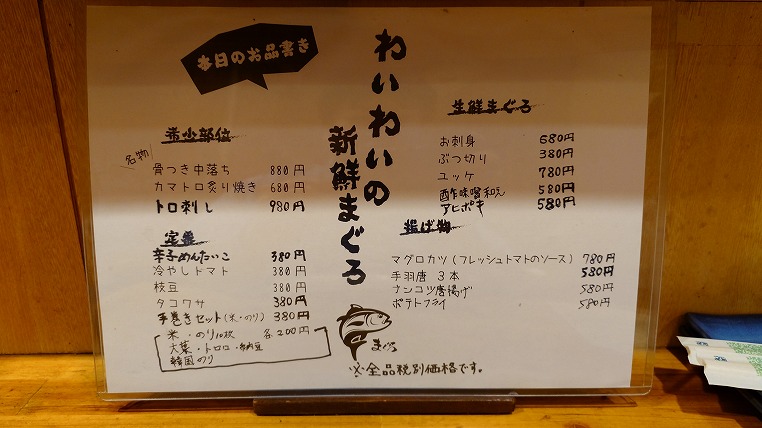 本日のお品書き
わいわいの
新鮮まぐろ
希少部位
名物
骨つき中落ち 880円
カマトロ炙り焼き 680円
トロ刺し 980円
定番
辛子めんたいこ 380円
冷やしトマト 380円
枝豆 380円
タコワサ 380円
手巻きセット(米・のり) 380円
米・のり10枚 各200円
大葉・トロロ・納豆
韓国のり
生鮮まぐろ
お刺身 680円
ぶつ切り 380円
ユッケ 780円
酢味噌和え 580円
アヒポキ 580円
揚げ物
マグロカツ(フレッシュトマトのソース) 780円
手羽唐 3本 580円
ナンコツ唐揚げ 580円
ポテトフライ 580円
まぐろ
※全品税別価格です。